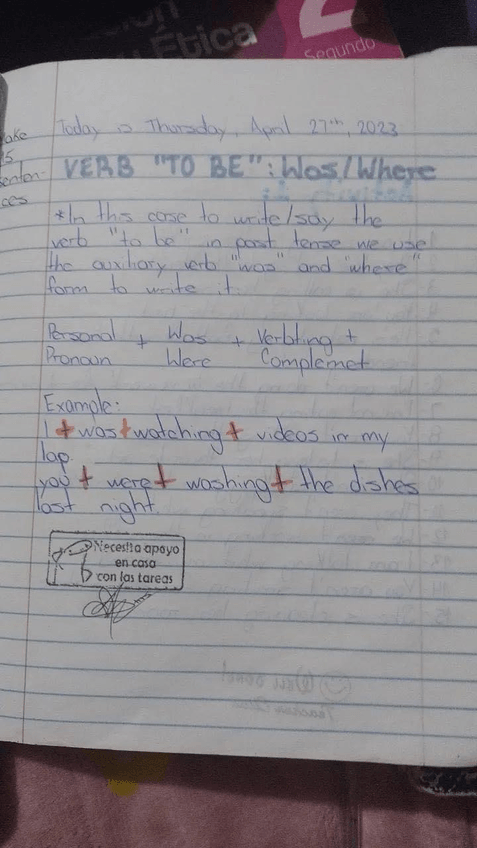 ión
y Ética
2
Segundo
ake
s
enten-
ces
Today is Thursday, April 27th, 2023
VERB "TO BE": Was/Where
*In this case to write/say the
verb "to be" in past tense we use
the auxiliary verb "was" and "where"
form to write it.
Personal + Was + Verb+ing +
Pronoun Were Complemet
Example:
I + was + watching + videos in my
lap.
you + were + washing + the dishes
last night.
Necesita apoyo
en casa
con las tareas